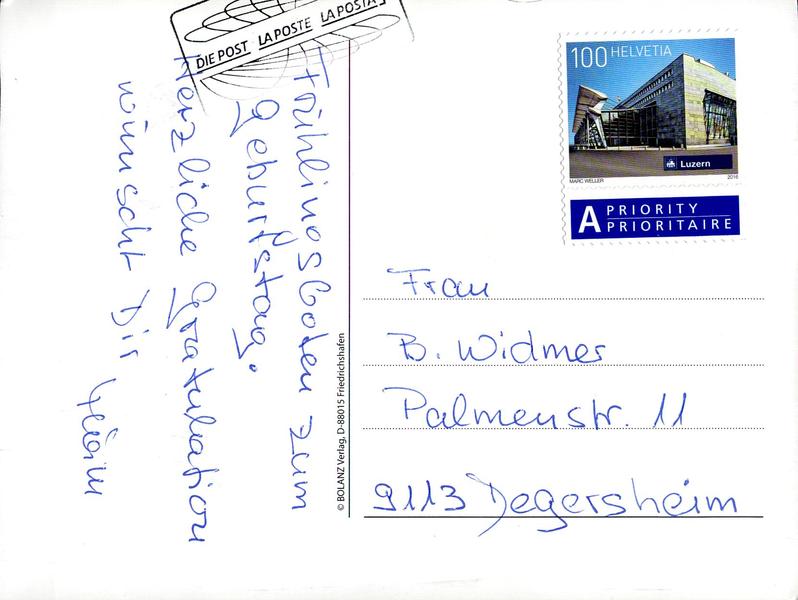 DIE POST LA POSTE LA POSTA
Frühlingsboten zum
Geburtstag.
Herzliche Gratulation
wünscht Dir
© BOLANZ Verlag, D-88015 Friedrichshafen
100 HELVETIA
Luzern
MARC WELLER 2016
A PRIORITY
PRIORITAIRE
Frau
B. Widmer
Palmenstr. 11
9113 Degersheim